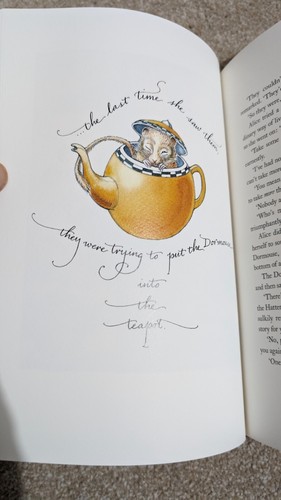 ...the last time she saw them
they were trying to put the Dormouse
into
the
teapot.
'They couldn'
remarked. 'They'
'So they were,
Alice tried
dinary way of li
'Take some
earnestly.
'I've had
can't take more
'You mean
to take more th
'Nobody a
'Who's
triumphantly
Alice did
herself to so
Dormouse,
bottom of a
The Do
and then sa
'There
the Hatter
sulkily re
story for y
'No, p
you again
'One